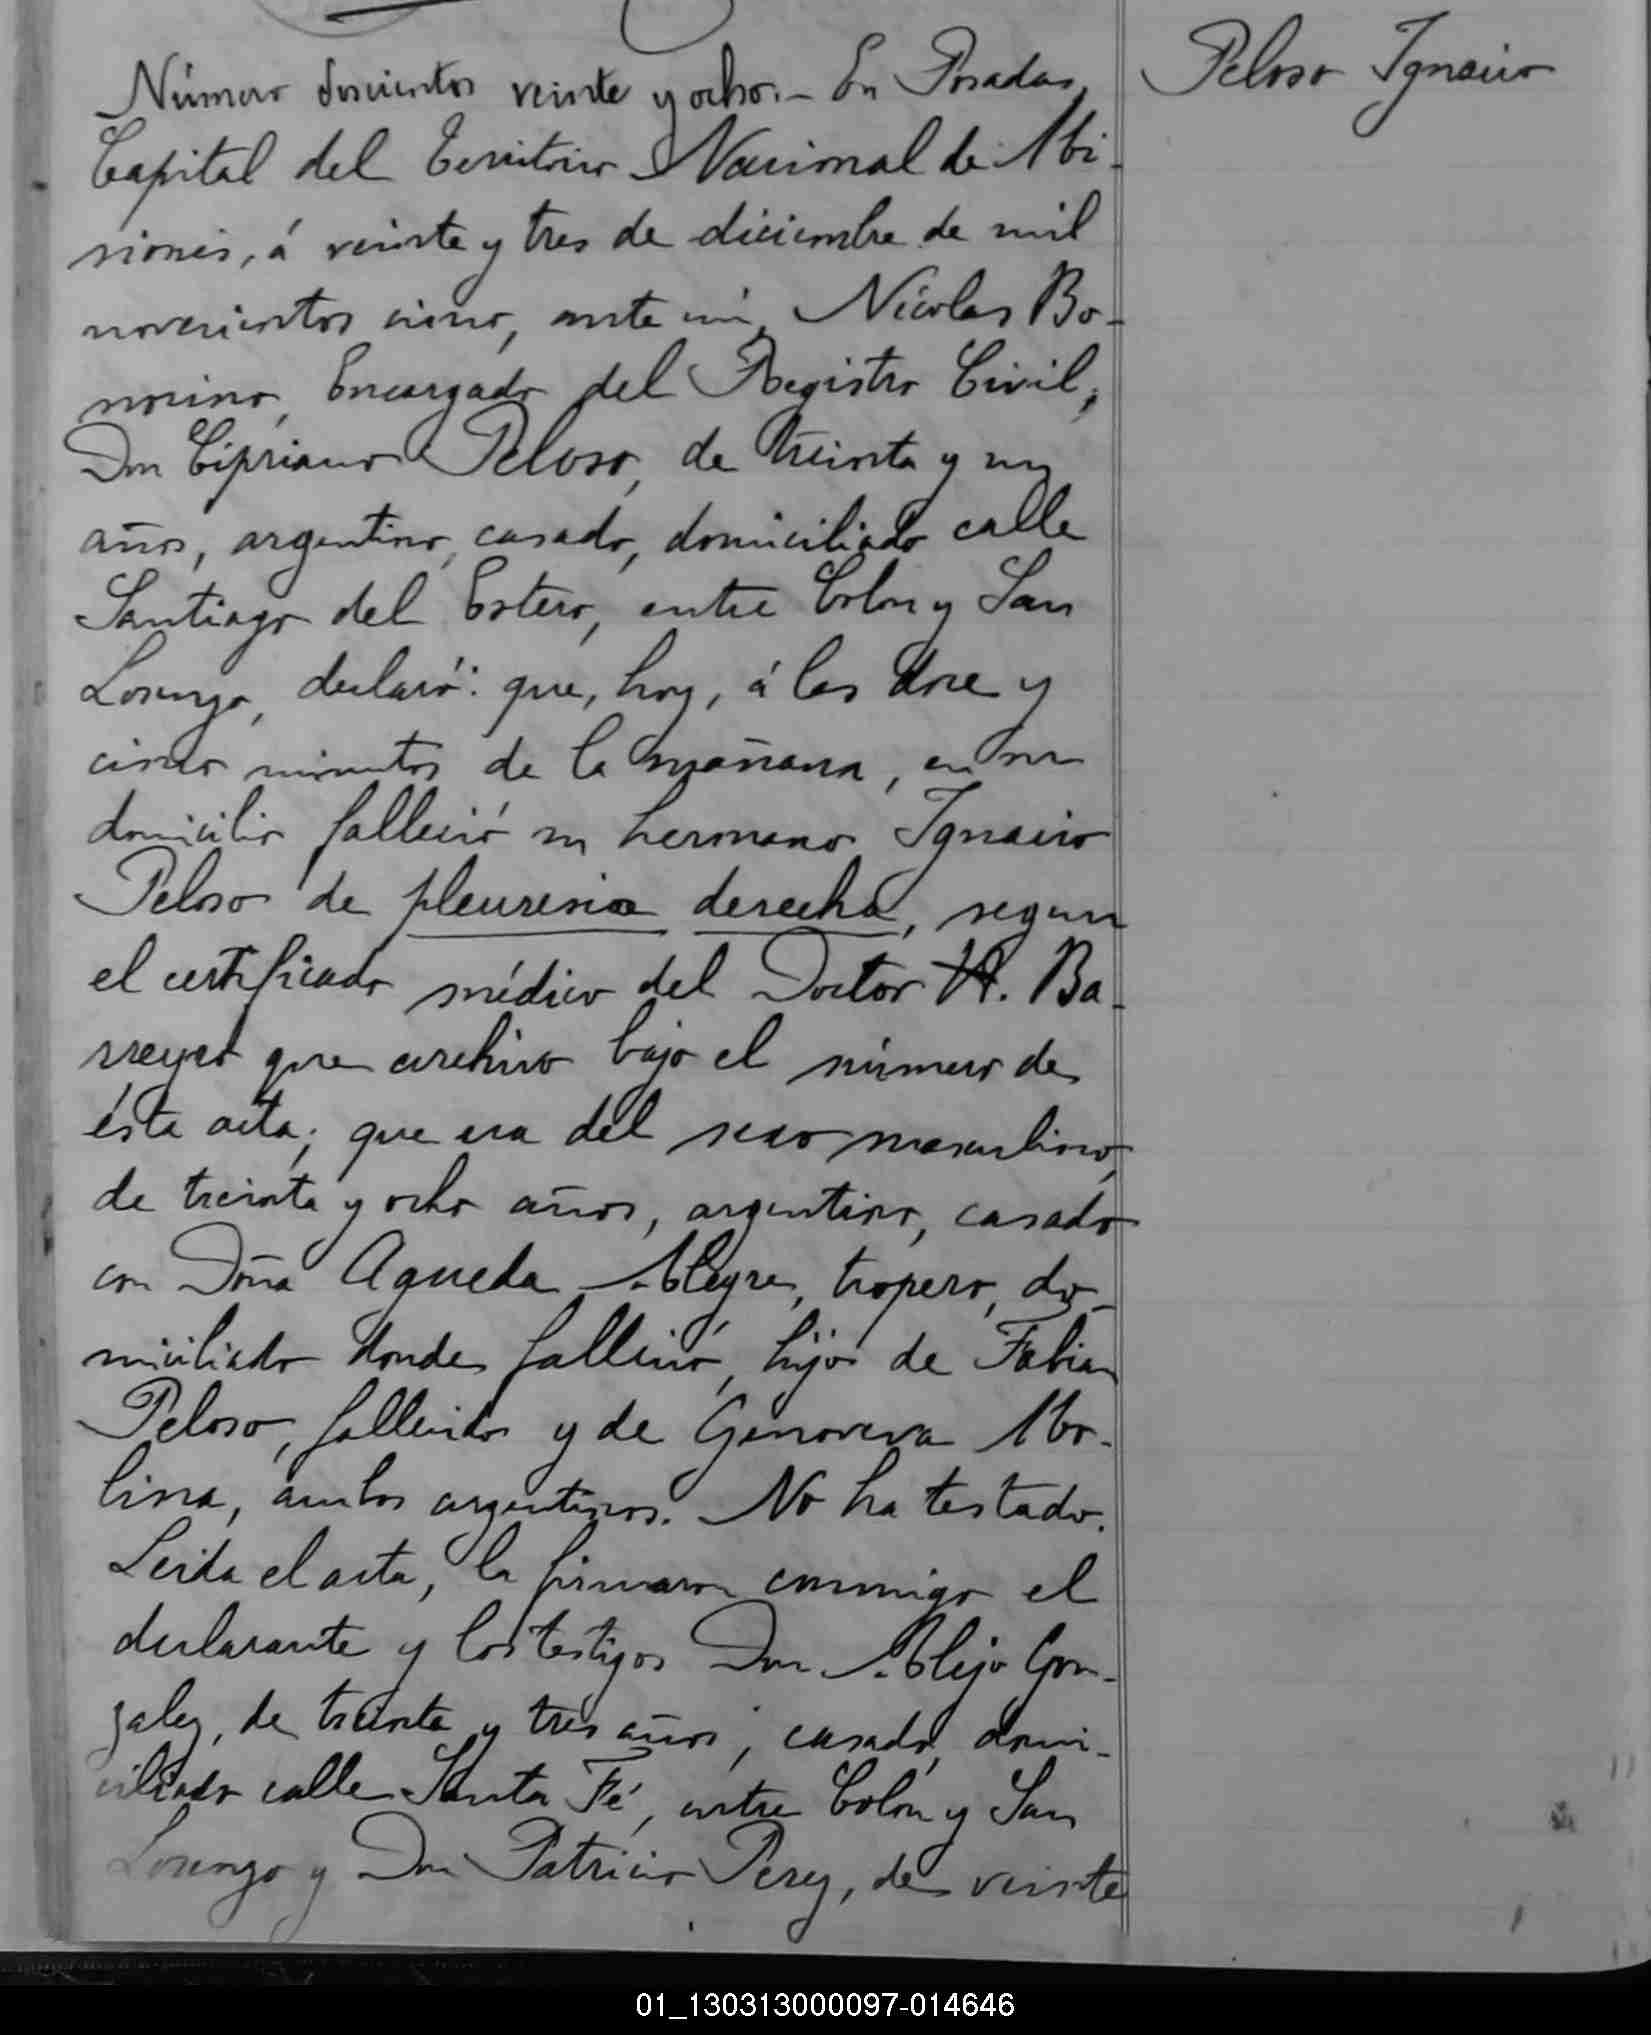 Peloso Ignacio
Número doscientos veinte y ocho.- En Posadas,
Capital del Territorio Nacional de Mi-
siones, á veinte y tres de diciembre de mil
novecientos cinco, ante mí, Nicolas Bo-
norino, Encargado del Registro Civil,
Don Cipriano Peloso, de treinta y un
años, argentino, casado, domiciliado calle
Santiago del Estero, entre Colon y San
Lorenzo, declaró: que, hoy, á las doce y
cinco minutos de la mañana, en su
domicilio falleció su hermano Ignacio
Peloso de pleuresia derecha, segun
el certificado médico del Doctor R. Ba-
rreyro que archivo bajo el número de
ésta acta; que era del sexo masculino,
de treinta y ocho años, argentino, casado
con Doña Agueda Alegre, tropero, do-
miciliado donde falleció, hijo de Fabian
Peloso, fallecido y de Genoveva Mo-
lina, ambos argentinos. No ha testado.
Leida el acta, la firmaron conmigo el
declarante y los testigos Don Alejo Gon-
zalez, de treinta y tres años, casado, domi-
ciliado calle Santa Fé, entre Colón y San
Lorenzo y Don Patricio Perez, de veinte
01_130313000097-014646